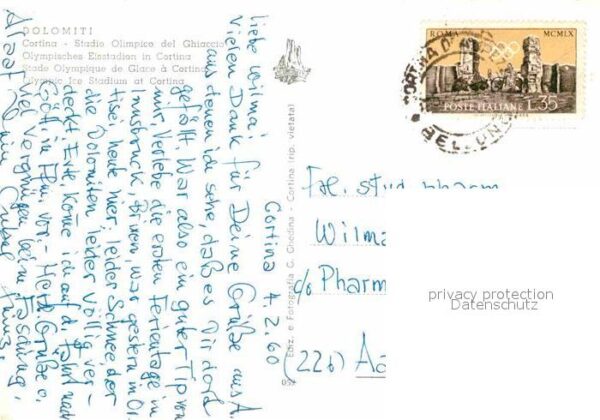 DOLOMITI
Cortina - Stadio Olimpico del Ghiaccio
Olympisches Eisstadion in Cortina
Stade Olympique de Glace à Cortina
Olympic Ice Stadium at Cortina
Cortina 4.2.60
Liebe Wilma!
Vielen Dank für Deine Grüße aus A.
aus denen ich sehe, daß es Dir dort
gefällt. War also ein guter Tip von
mir. Verlebe die ersten Ferientage in
Innsbruck, war gestern in
heute hier, leider Schnee der
die Dolomiten leider völlig ver-
deckt. Komme ich auf d. Fahrt nach
vor. - Herzl. Grüße u.
viel Vergnügen beim Fasching,
Dein
Ediz. e Fotografia G. Ghedina - Cortina (rip. vietata)
ROMA MCMLX
POSTE ITALIANE L.35
CORTINA D'
Frl. stud. pharm
Wilma
c/o Pharm
(22b) Aa
privacy protection
Datenschutz